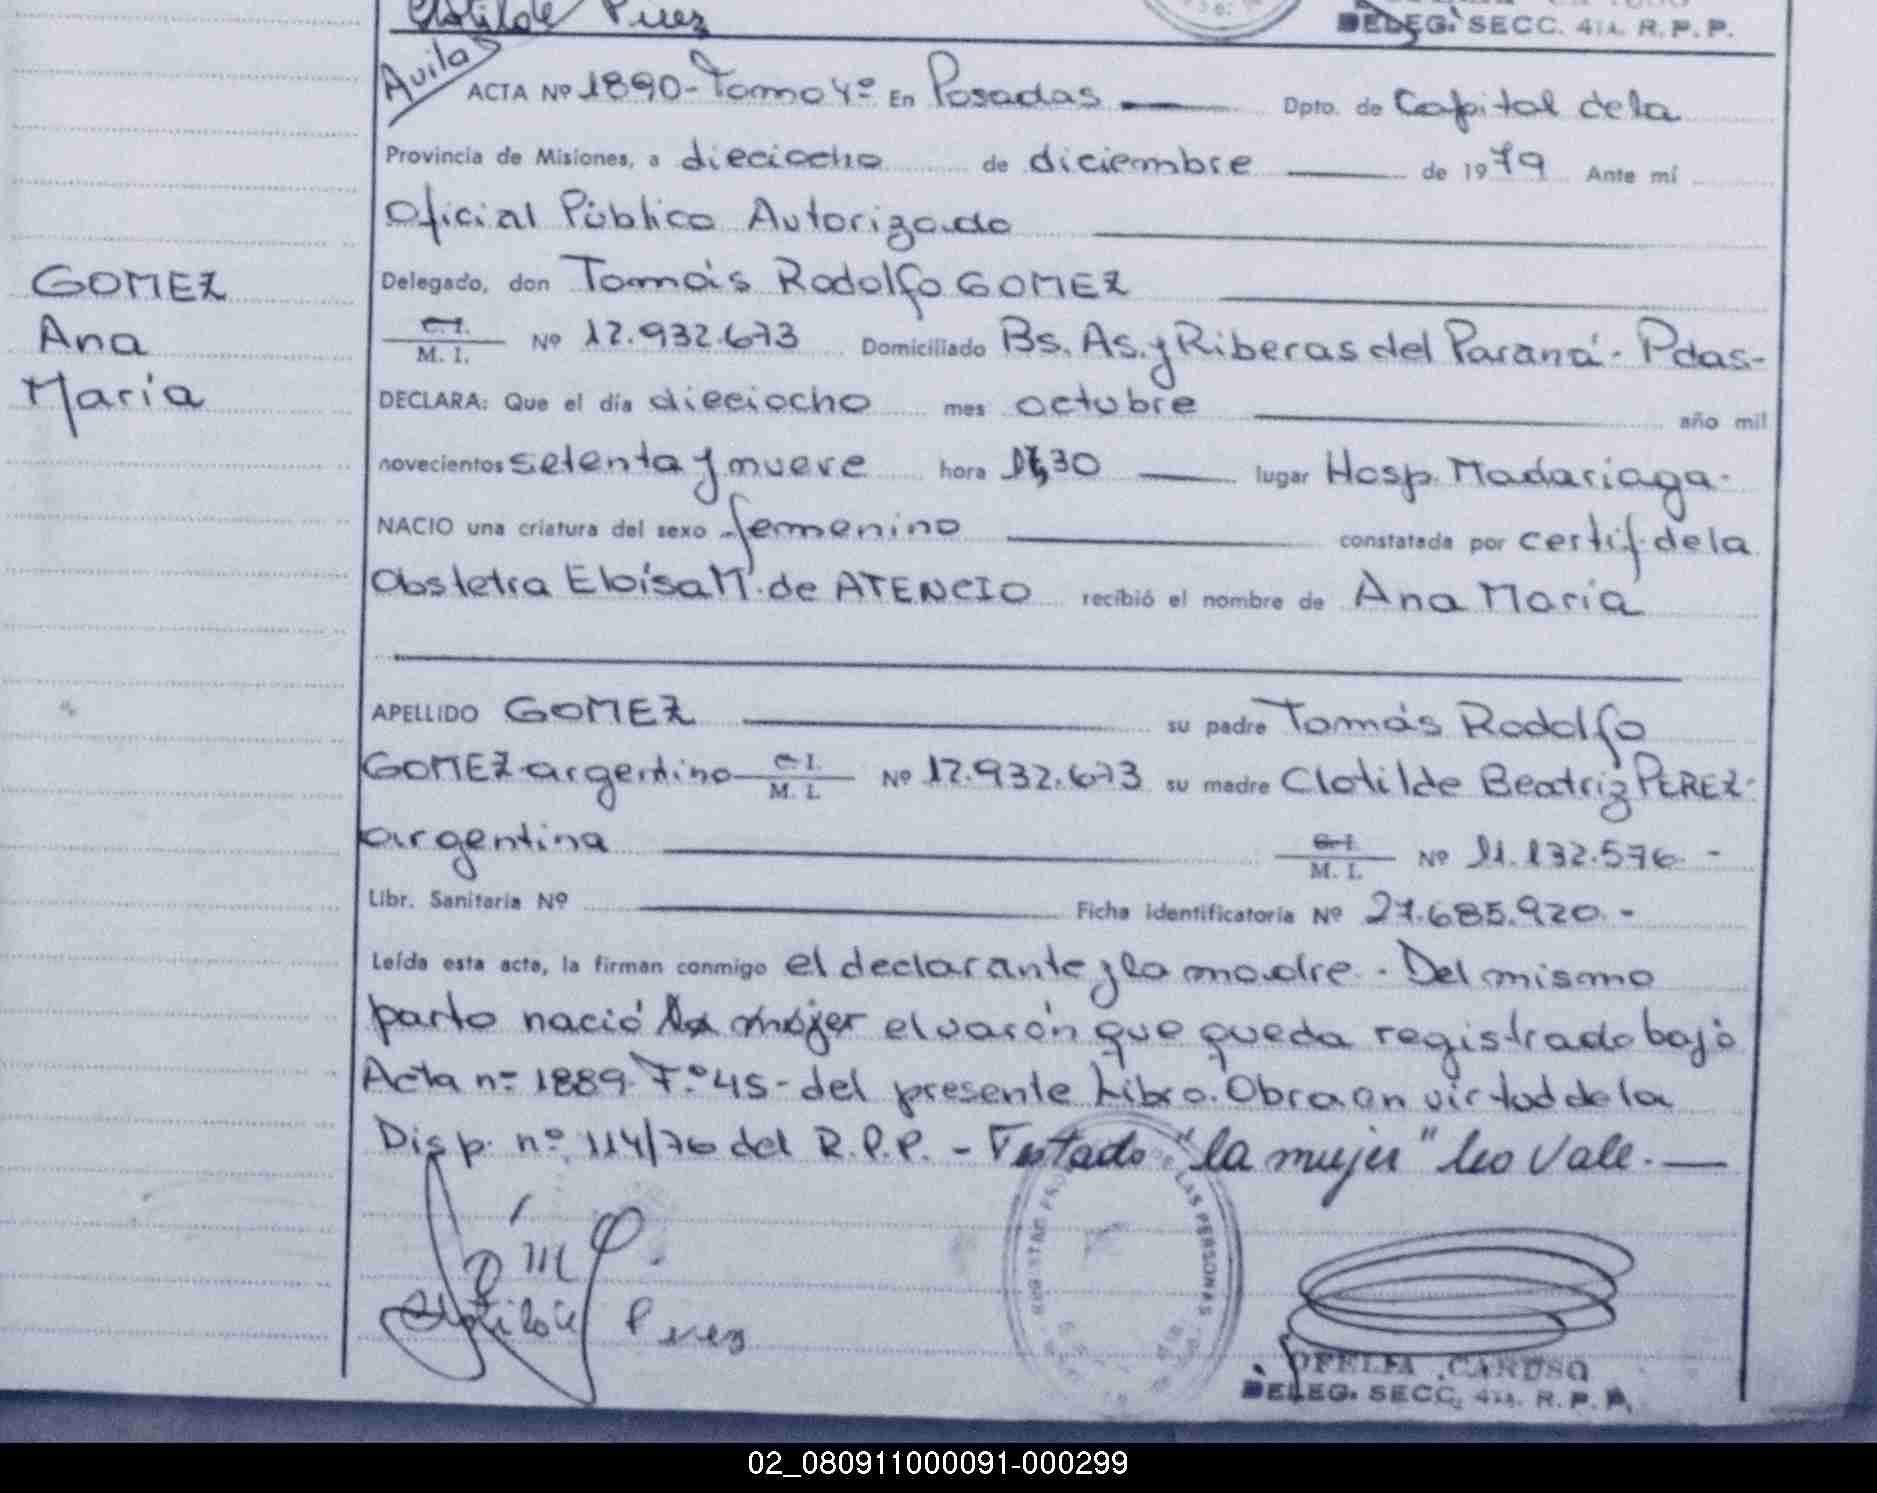 Clotilde Perez
DELEG. SECC. 4ta. R. P. P.
Avilas
ACTA Nº 1890 - Tomo 4º En Posadas Dpto. de Capital de la
Provincia de Misiones, a dieciocho de diciembre de 1979 Ante mí
Oficial Público Autorizado
Delegado, don Tomás Rodolfo GOMEZ
GOMEZ
Ana
María
C. I.
M. I. Nº 12.932.673 Domiciliado Bs. As. y Riberas del Paraná - Pdas-
DECLARA: Que el día dieciocho mes octubre año mil
novecientos setenta y nueve hora 17,30 lugar Hosp. Madariaga-
NACIO una criatura del sexo femenino constatada por certif. de la
Obstetra Eloísa M. de ATENCIO recibió el nombre de Ana María
APELLIDO GOMEZ su padre Tomás Rodolfo
GOMEZ argentino C. I.
M. I. Nº 12.932.673 su madre Clotilde Beatriz PEREZ-
argentina C. I.
M. I. Nº 11.132.576 -
Libr. Sanitaria Nº Ficha identificatoria Nº 27.685.920.-
Leída esta acta, la firman conmigo el declarante y la madre.- Del mismo
parto nació la mujer el varón que queda registrado bajo
Acta nº 1889 Fº 45 - del presente Libro. Obra en virtud de la
Disp. nº 114/76 del R.P.P. - Testado "la mujer" leo Vale.
Clotilde Perez
REGISTRO PROV DE LAS PERSONAS
OFELIA CARUSO
DELEG. SECC. 4ta. R. P. P.
02_080911000091-000299